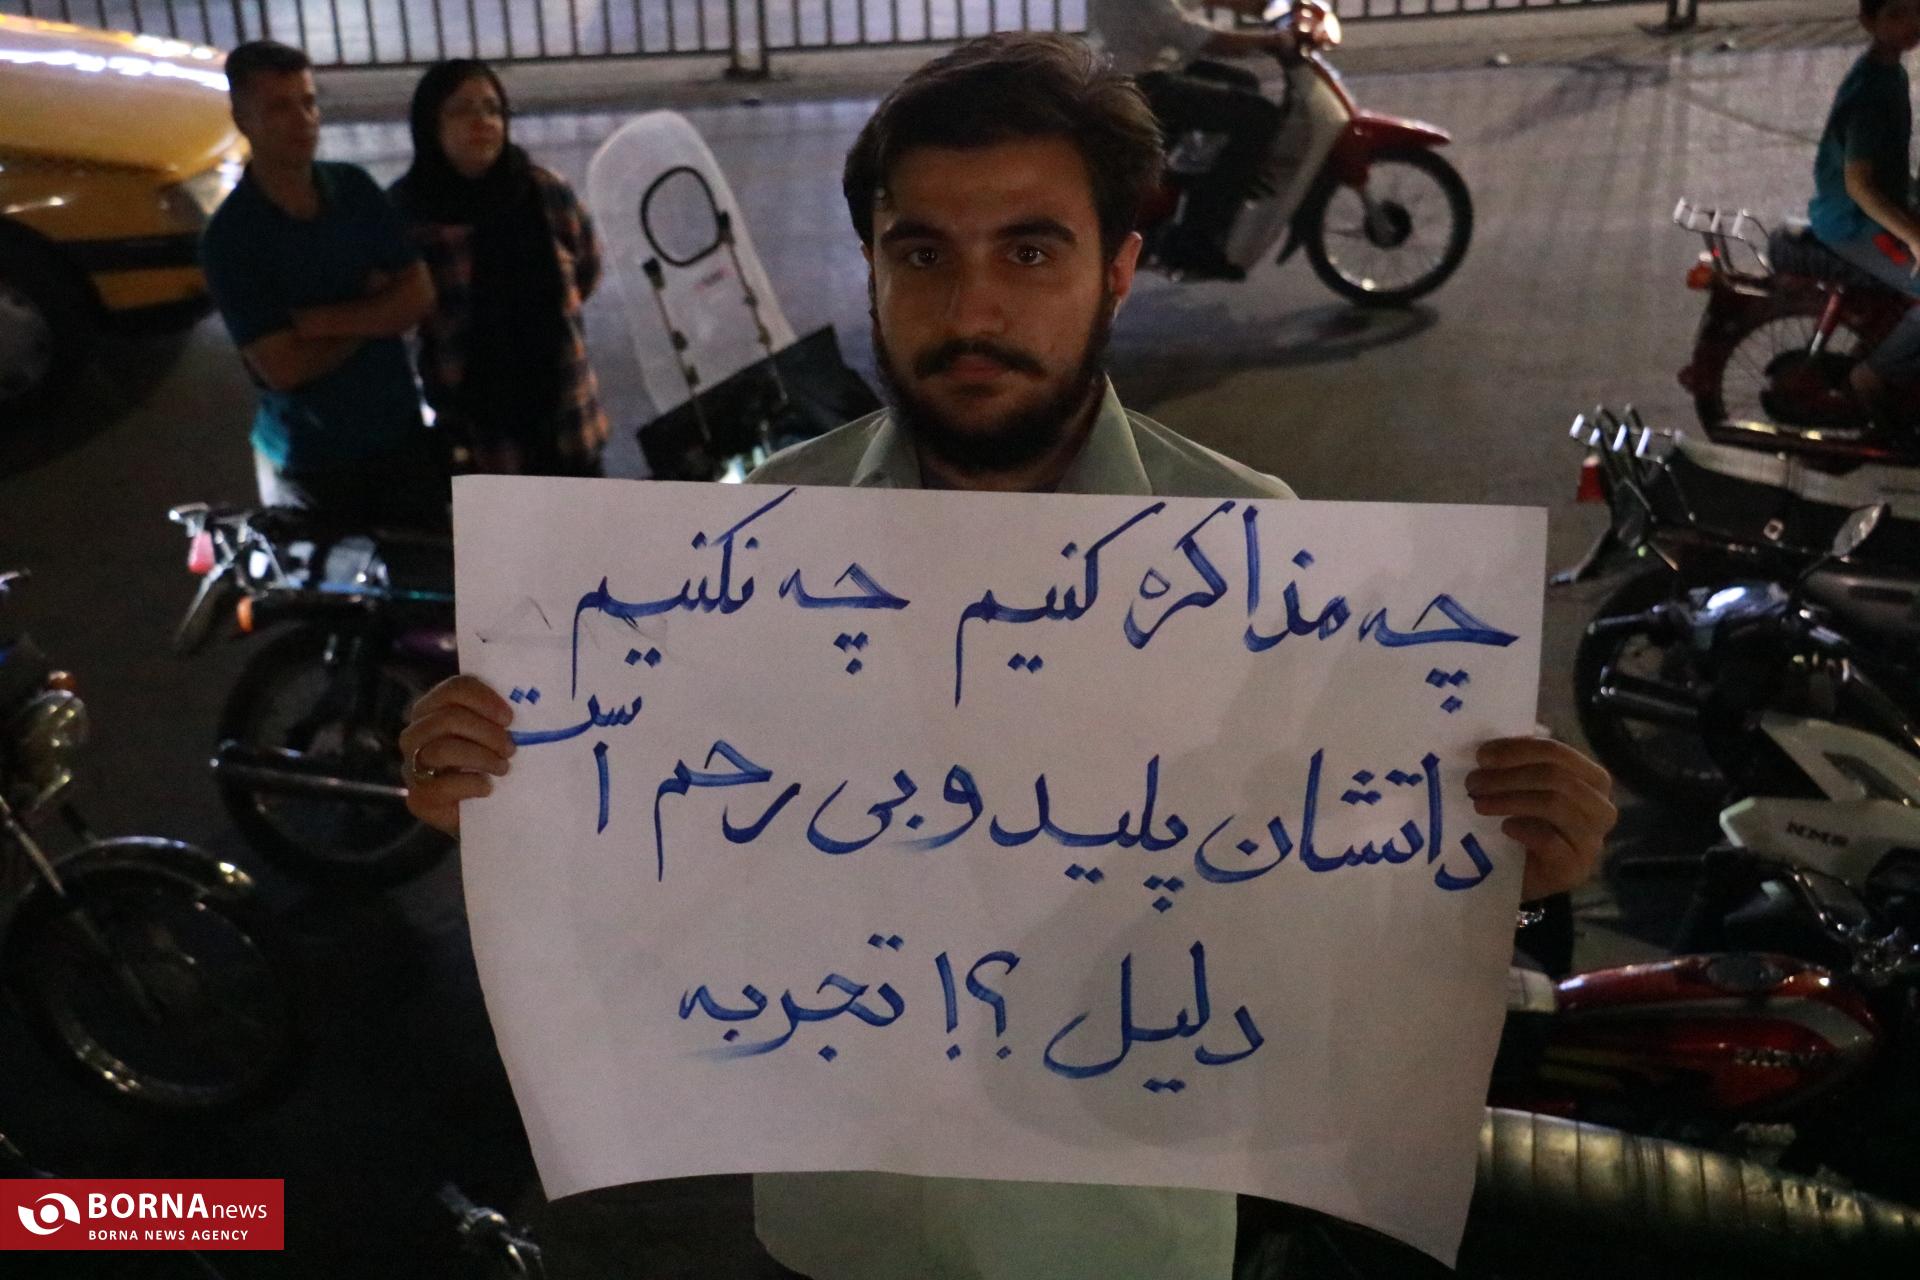 چه مذاکره کنیم چه نکنیم
ذاتشان پلید و بی رحم است
دلیل ؟! تجربه
NMS
BORNAnews
BORNA NEWS AGENCY